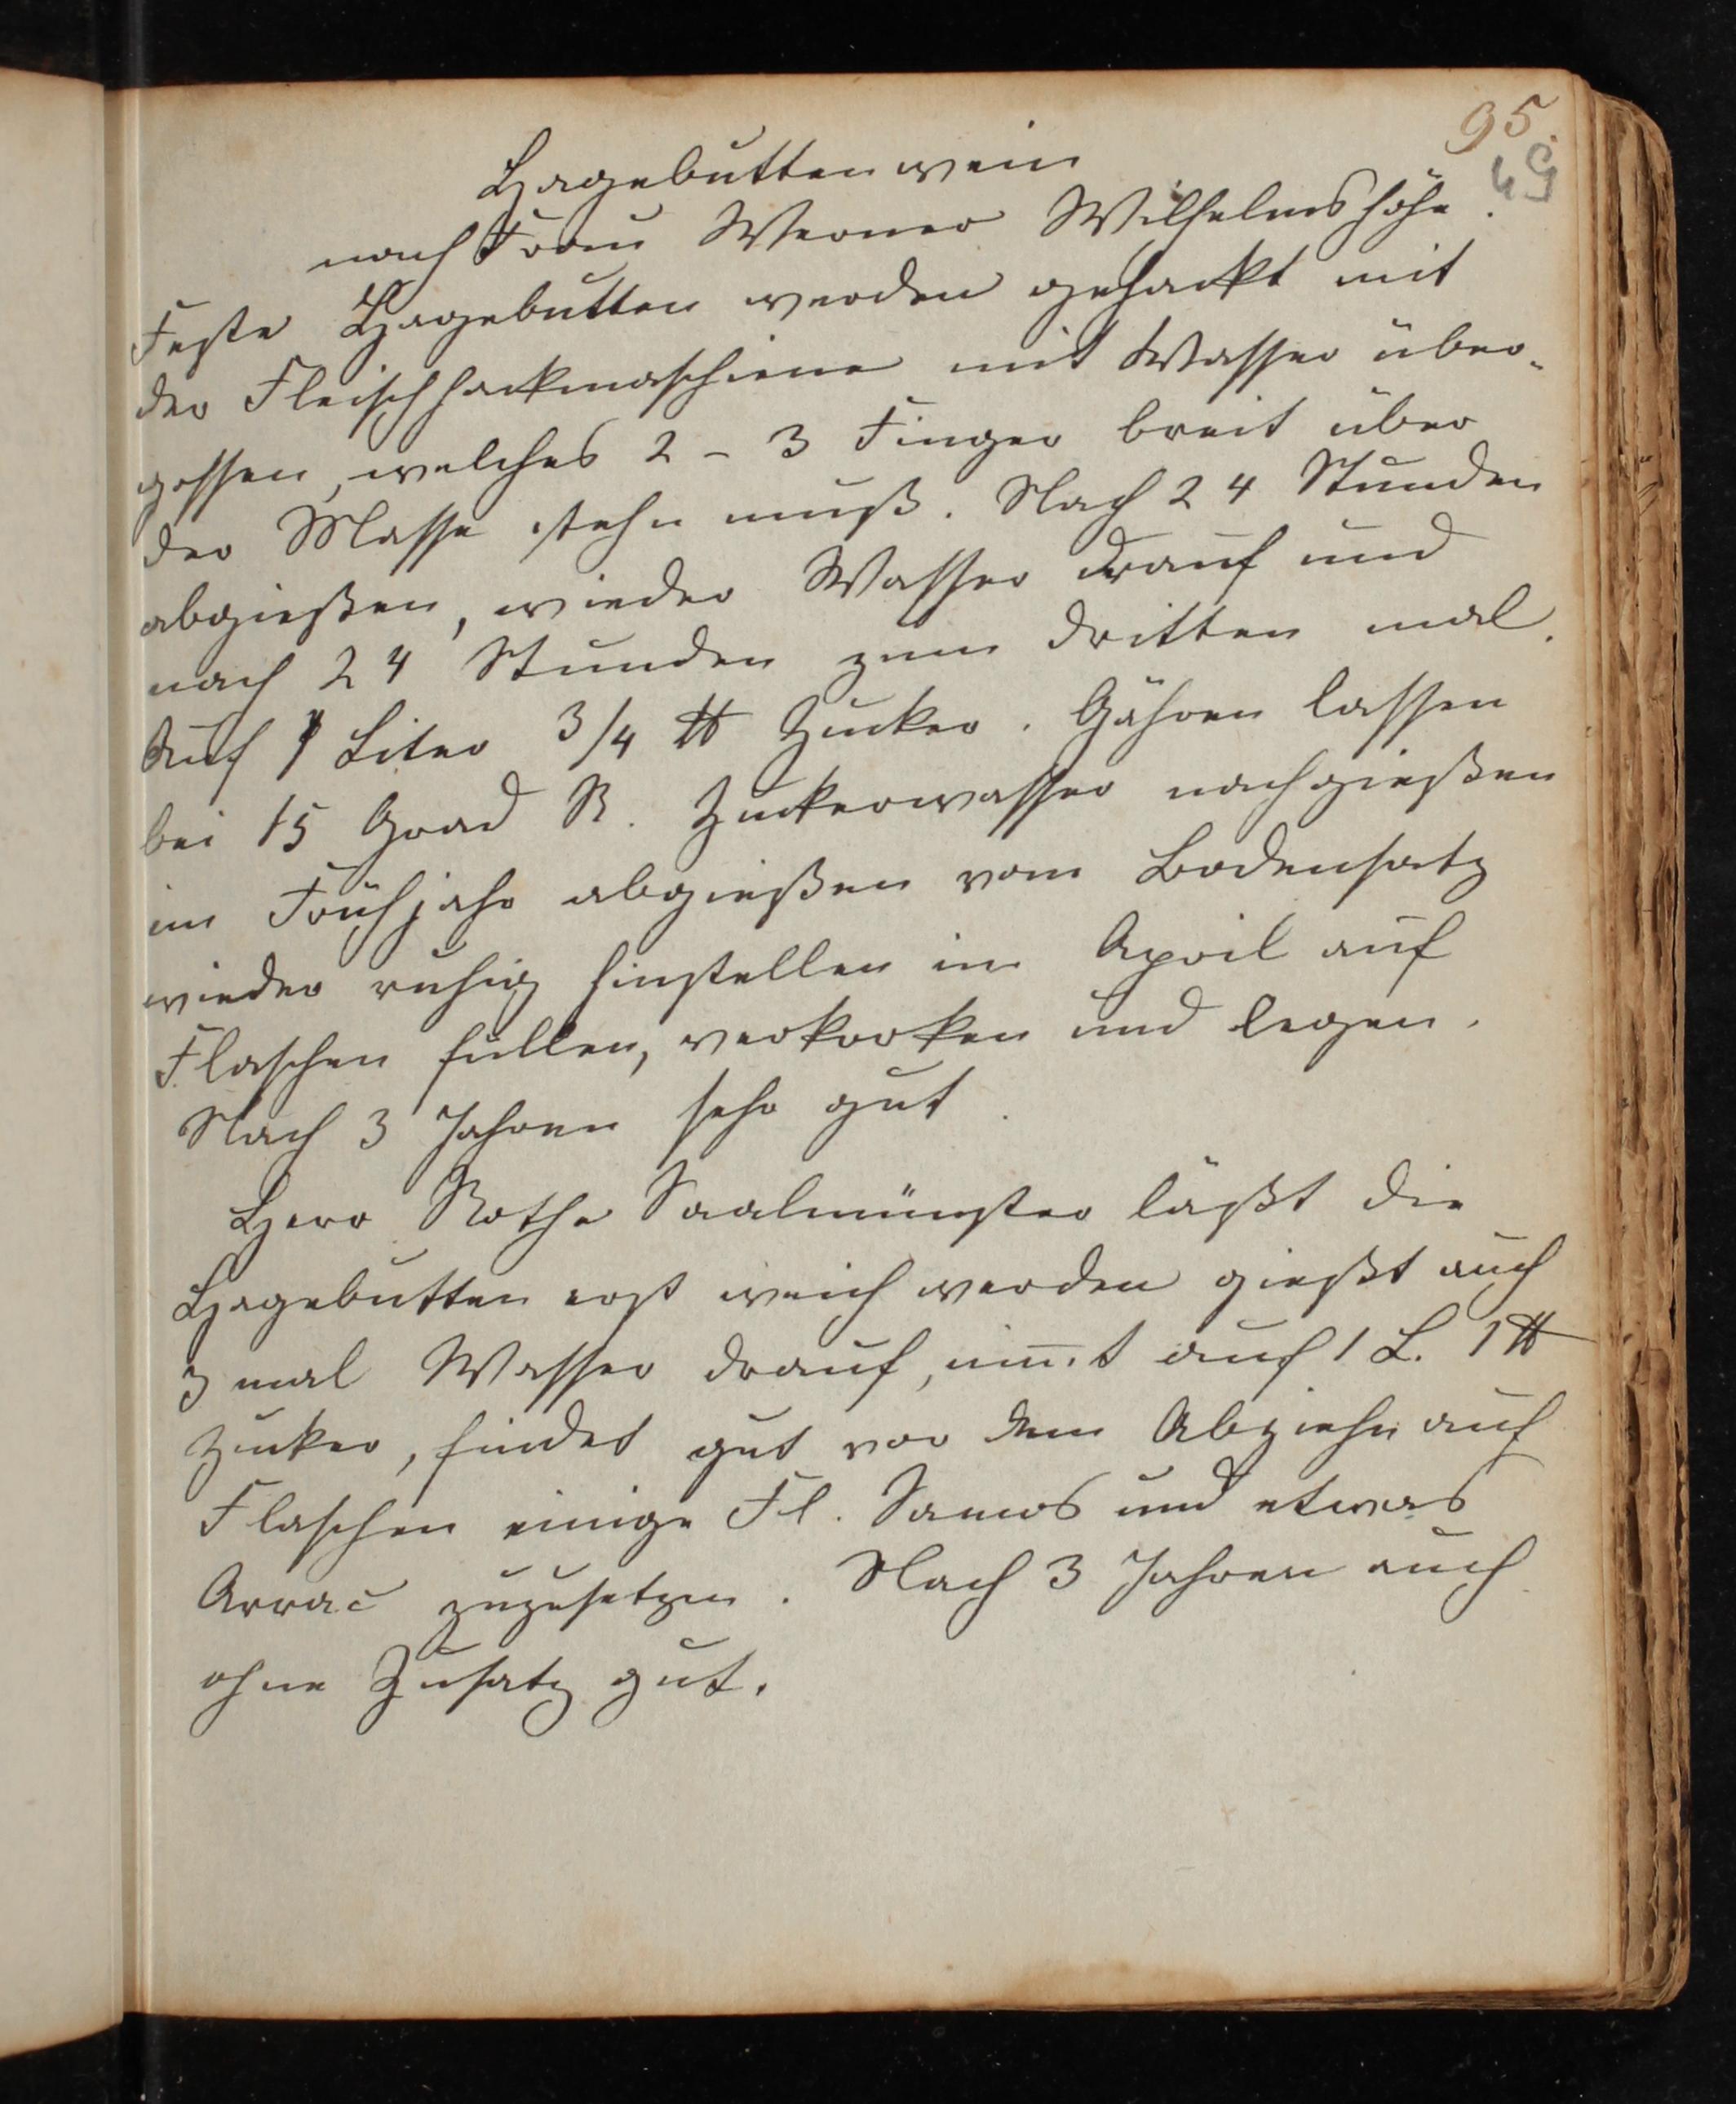 95.
49
Hagebuttenwein
nach Frau Werner Wilhelmshöhe.
Feste Hagebutten werden gehackt mit
der Fleischhackmaschiene mit Wasser über-
gossen, welches 2 - 3 Finger breit über
der Masse stehn muß. Nach 24 Stunden
abgießen, wieder Wasser drauf und
nach 24 Stunden zum dritten mal.
Auf 1 Liter 3/4 ℔ Zucker. Gähren lassen
bei 15 Grad R. Zuckerwasser nachgießen
im Frühjahr abgießen vom Bodensatz
wieder ruhig hinstellen im April auf
Flaschen füllen, verkorken und legen.
Nach 3 Jahren sehr gut.
Herr Rothe Saalmünster läßt die
Hagebutten erst weich werden gießt auch
3 mal Wasser drauf, nim̅t auf 1 L. 1 ℔
Zucker, findet gut vor dem Abziehn auf
Flaschen einige Fl. Samos und etwas
Arrac zuzusetzen. Nach 3 Jahren auch
ohne Zusatz gut.